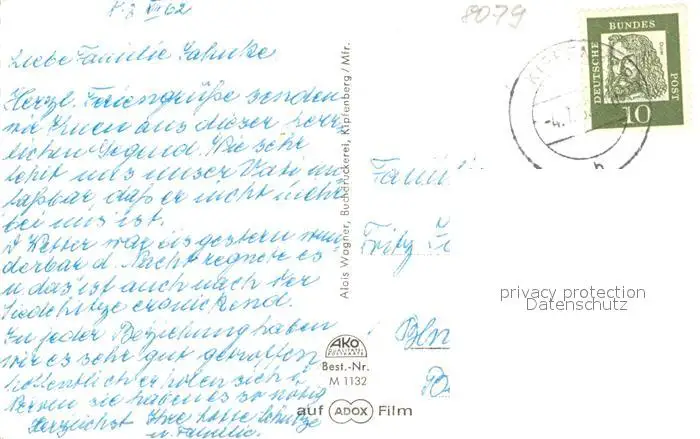 62
8079
Liebe Familie Jahnke
Herzl. Feriengrüße senden
wir Ihnen aus dieser herr
lichen Gegend. Wie sehr
fehlt uns unser Vati un
faßbar, daß er nicht mehr
bei uns ist.
D. Wetter war bis gestern wun
derbar d. Nacht regnete es
u das ist auch nach der
Siedehitze erquickend.
In jeder Beziehung haben
wir es sehr gut getroffen
hoffentlich erholen sich
sie haben es so nötig
Herzlichst Ihre
u. Familie.
Alois Wagner, Buchdruckerei, Kipfenberg/Mfr.
AKO
POSTKARTE
Best.-Nr.
M 1132
auf ADOX Film
DEUTSCHE
BUNDES
POST
Dürer
10
Famili
Fritz
Bln
privacy protection
Datenschutz